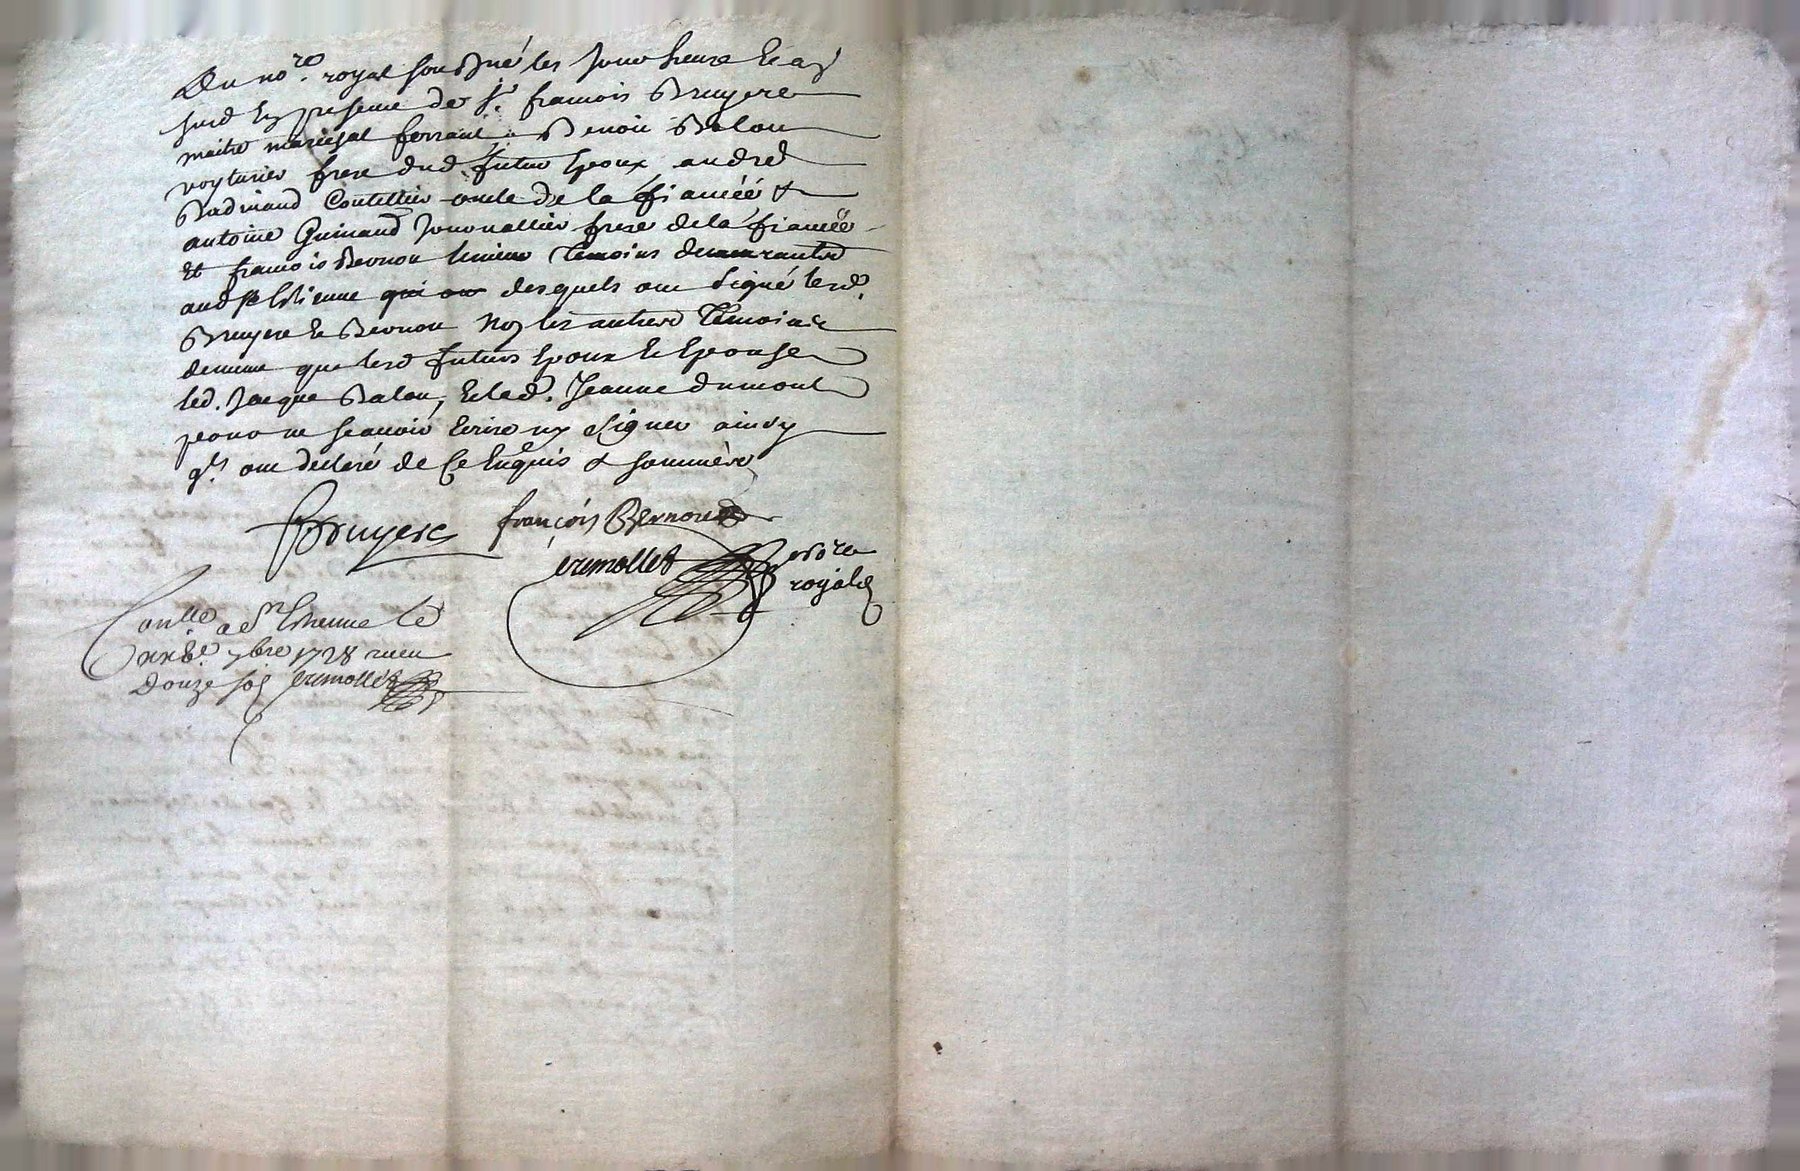 Du no.re royal soubsiné les jour heure & an
susd en presence de sr. francois Bruyere
maitre marechal ferrant Benoit Balou
voyturier frere dud. futur epoux andré
Badinand Coutellier oncle de la fiancéé &
antoine Guinand journallier frere de la fianceé
Et francois Bernou temoins demeurantz
aud st Estienne qui on desquels ont signé lesd.
Bruyere & Bernou non les autres temoins
de mesme que lesd futurs epoux & epouse
led. Jacque Balou, & lad. Jeanne dumont
pour ne scauoir écrire ny signer ainsy
ql. ont declaré de ce enquis & sommés
Bruyere françois Bernou
erimollet no.re
royal
Conlle a St Estienne le
7bre 1728 receu
Douze sols erimollet